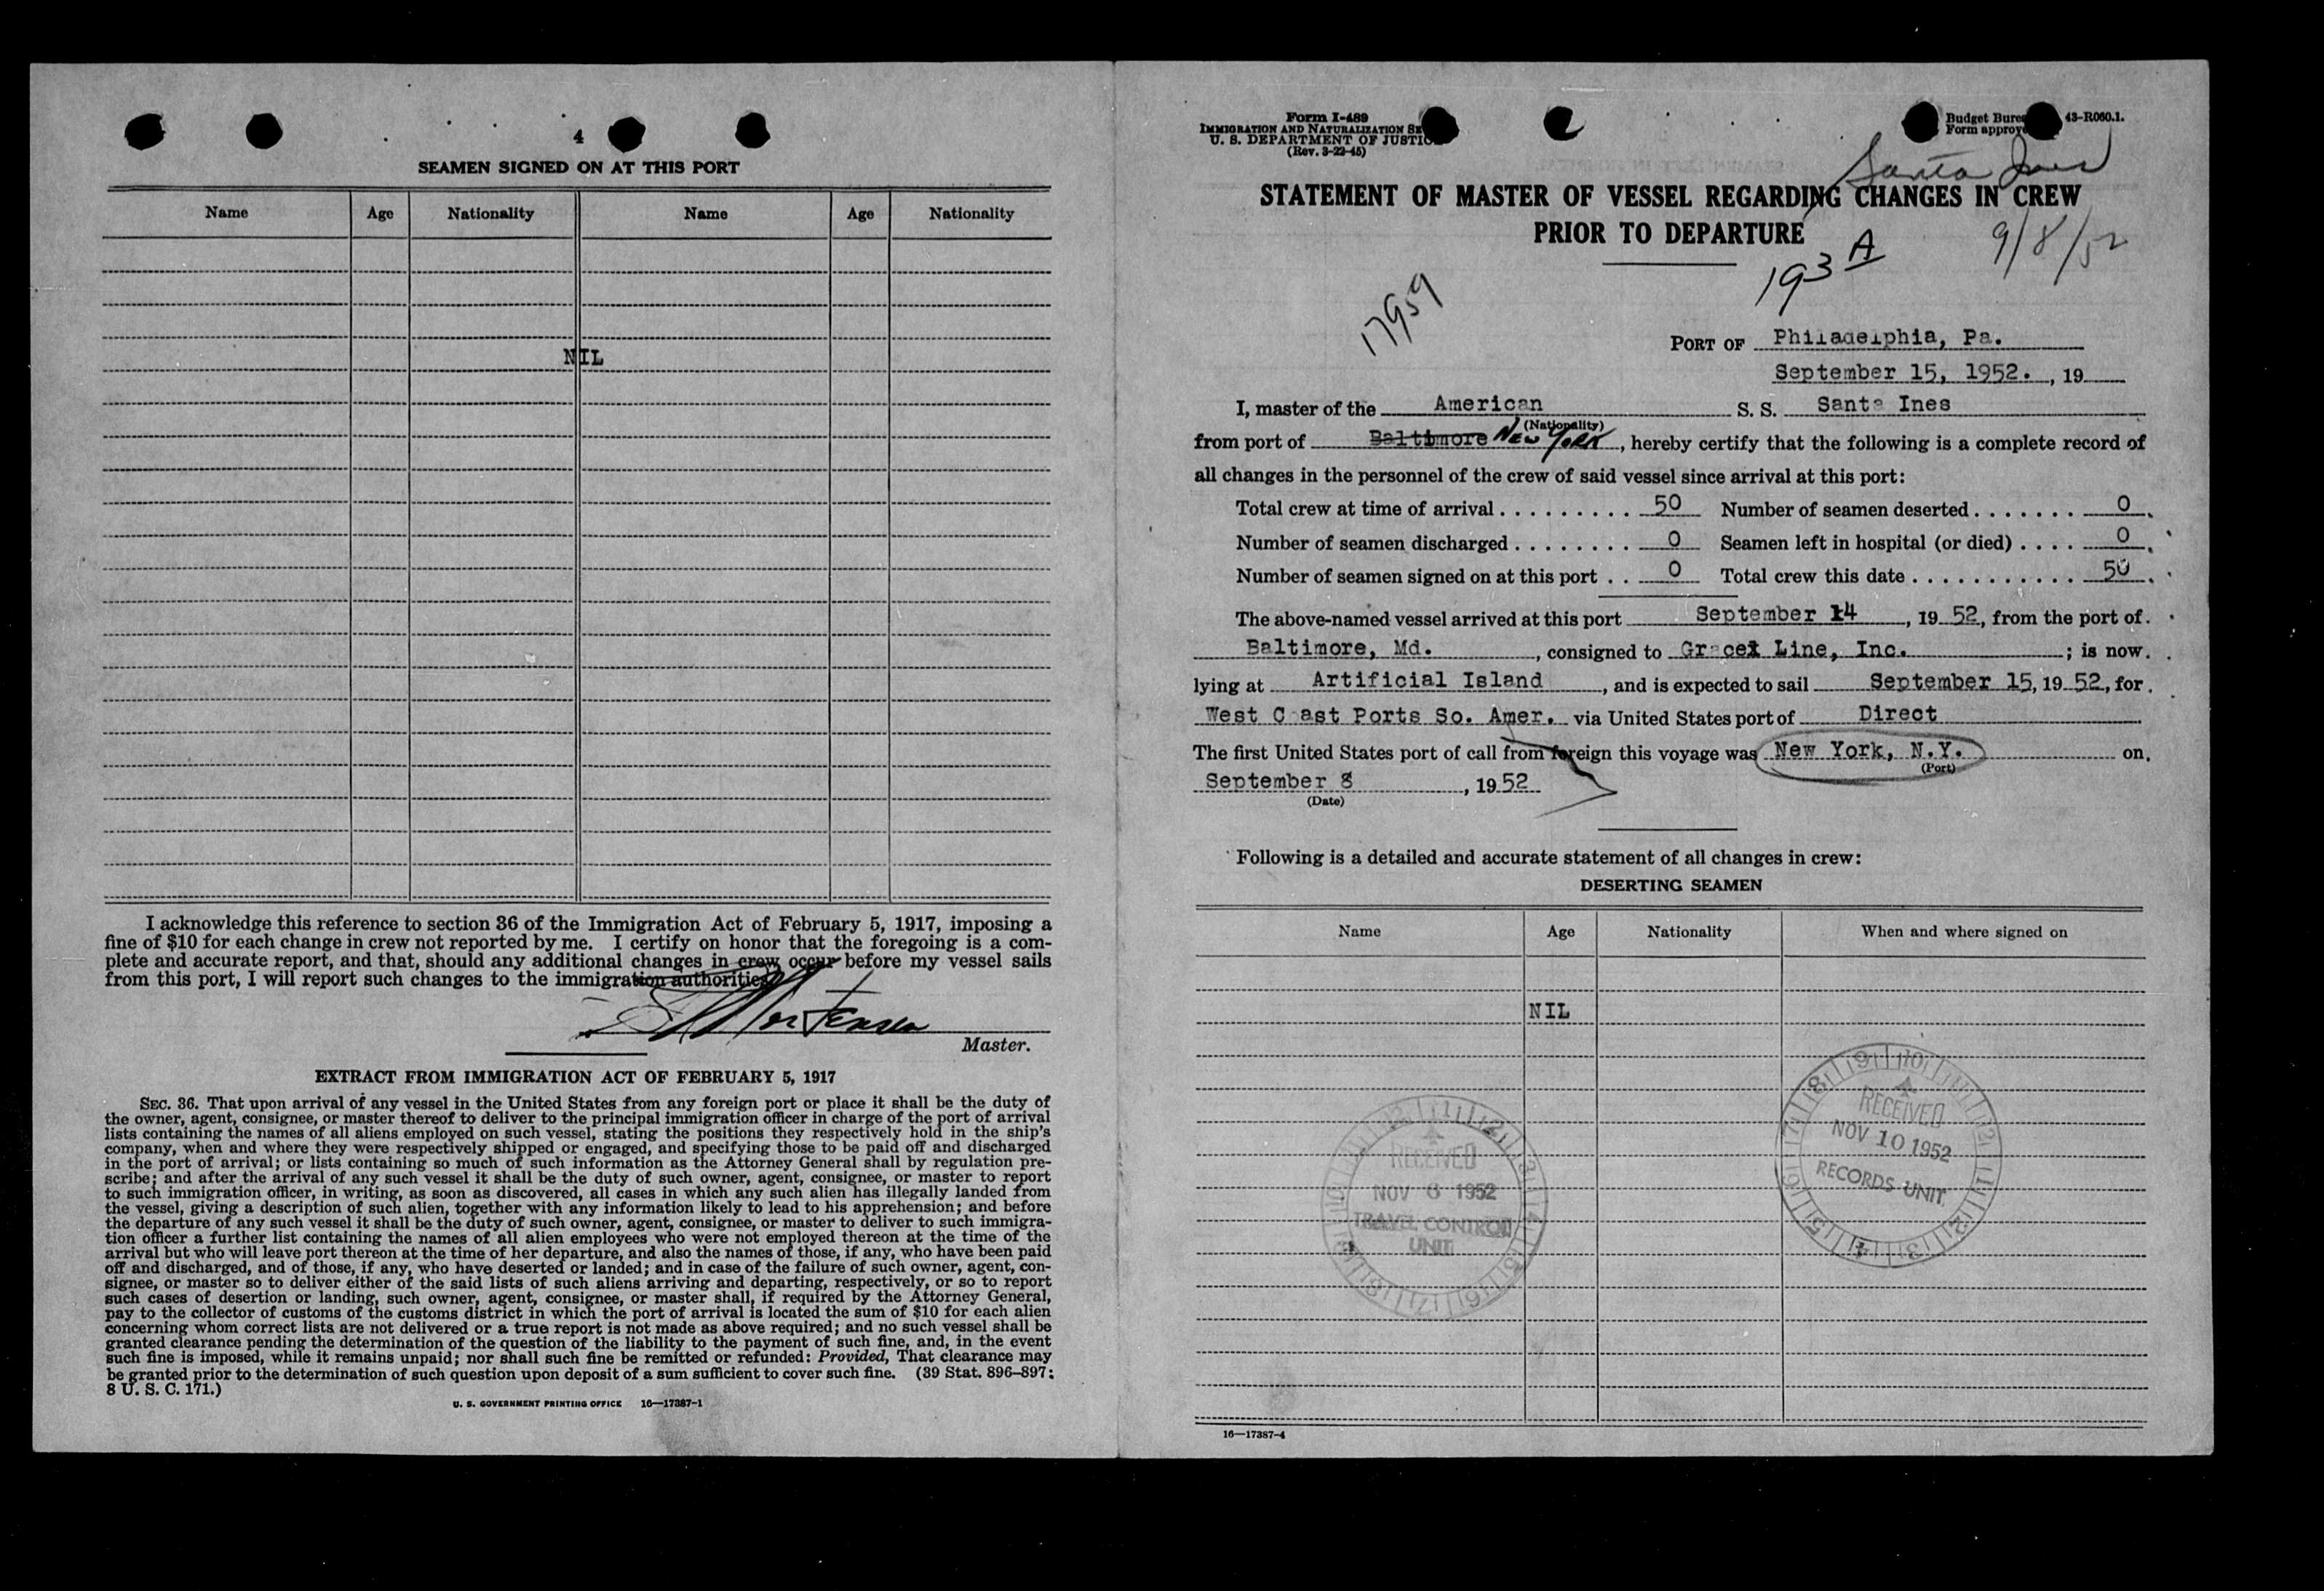 4
SEAMEN SIGNED ON AT THIS PORT
Name Age Nationality Name Age Nationality
NIL
I acknowledge this reference to section 36 of the Immigration Act of February 5, 1917, imposing a
fine of $10 for each change in crew not reported by me. I certify on honor that the foregoing is a com-
plete and accurate report, and that, should any additional changes in crew occur before my vessel sails
from this port, I will report such changes to the immigration authorities.
Mortensen
Master.
EXTRACT FROM IMMIGRATION ACT OF FEBRUARY 5, 1917
SEC. 36. That upon arrival of any vessel in the United States from any foreign port or place it shall be the duty of
the owner, agent, consignee, or master thereof to deliver to the principal immigration officer in charge of the port of arrival
lists containing the names of all aliens employed on such vessel, stating the positions they respectively hold in the ship's
company, when and where they were respectively shipped or engaged, and specifying those to be paid off and discharged
in the port of arrival; or lists containing so much of such information as the Attorney General shall by regulation pre-
scribe; and after the arrival of any such vessel it shall be the duty of such owner, agent, consignee, or master to report
to such immigration officer, in writing, as soon as discovered, all cases in which any such alien has illegally landed from
the vessel, giving a description of such alien, together with any information likely to lead to his apprehension; and before
the departure of any such vessel it shall be the duty of such owner, agent, consignee, or master to deliver to such immigra-
tion officer a further list containing the names of all alien employees who were not employed thereon at the time of the
arrival but who will leave port thereon at the time of her departure, and also the names of those, if any, who have been paid
off and discharged, and of those, if any, who have deserted or landed; and in case of the failure of such owner, agent, con-
signee, or master so to deliver either of the said lists of such aliens arriving and departing, respectively, or so to report
such cases of desertion or landing, such owner, agent, consignee, or master shall, if required by the Attorney General,
pay to the collector of customs of the customs district in which the port of arrival is located the sum of $10 for each alien
concerning whom correct lists are not delivered or a true report is not made as above required; and no such vessel shall be
granted clearance pending the determination of the question of the liability to the payment of such fine, and, in the event
such fine is imposed, while it remains unpaid; nor shall such fine be remitted or refunded: Provided, That clearance may
be granted prior to the determination of such question upon deposit of a sum sufficient to cover such fine. (39 Stat. 896–897;
8 U. S. C. 171.)
U. S. GOVERNMENT PRINTING OFFICE 16—17387-1
Form I-489
IMMIGRATION AND NATURALIZATION SE
U. S. DEPARTMENT OF JUSTIC
(Rev. 3-22-45)
Budget Bure 43-R060.1.
Form approve
Santa Ines
STATEMENT OF MASTER OF VESSEL REGARDING CHANGES IN CREW
PRIOR TO DEPARTURE
193 A
9/8/52
17959
PORT OF Philadelphia, Pa.
September 15, 1952. , 19
I, master of the American S. S. Santa Ines
(Nationality)
from port of Baltimore NEW YORK, hereby certify that the following is a complete record of
all changes in the personnel of the crew of said vessel since arrival at this port:
Total crew at time of arrival 50 Number of seamen deserted 0
Number of seamen discharged 0 Seamen left in hospital (or died) 0
Number of seamen signed on at this port 0 Total crew this date 50
The above-named vessel arrived at this port September 14, 19 52, from the port of
Baltimore, Md. , consigned to Grace Line, Inc. ; is now
lying at Artificial Island , and is expected to sail September 15, 19 52, for
West Coast Ports So. Amer. via United States port of Direct
The first United States port of call from foreign this voyage was New York, N.Y. on
(Port)
September 8 , 19 52
(Date)
Following is a detailed and accurate statement of all changes in crew:
DESERTING SEAMEN
Name Age Nationality When and where signed on
NIL
RECEIVED
NOV 6 1952
TRAVEL CONTROL
UNIT
RECEIVED
NOV 10 1952
RECORDS UNIT
16—17387-4